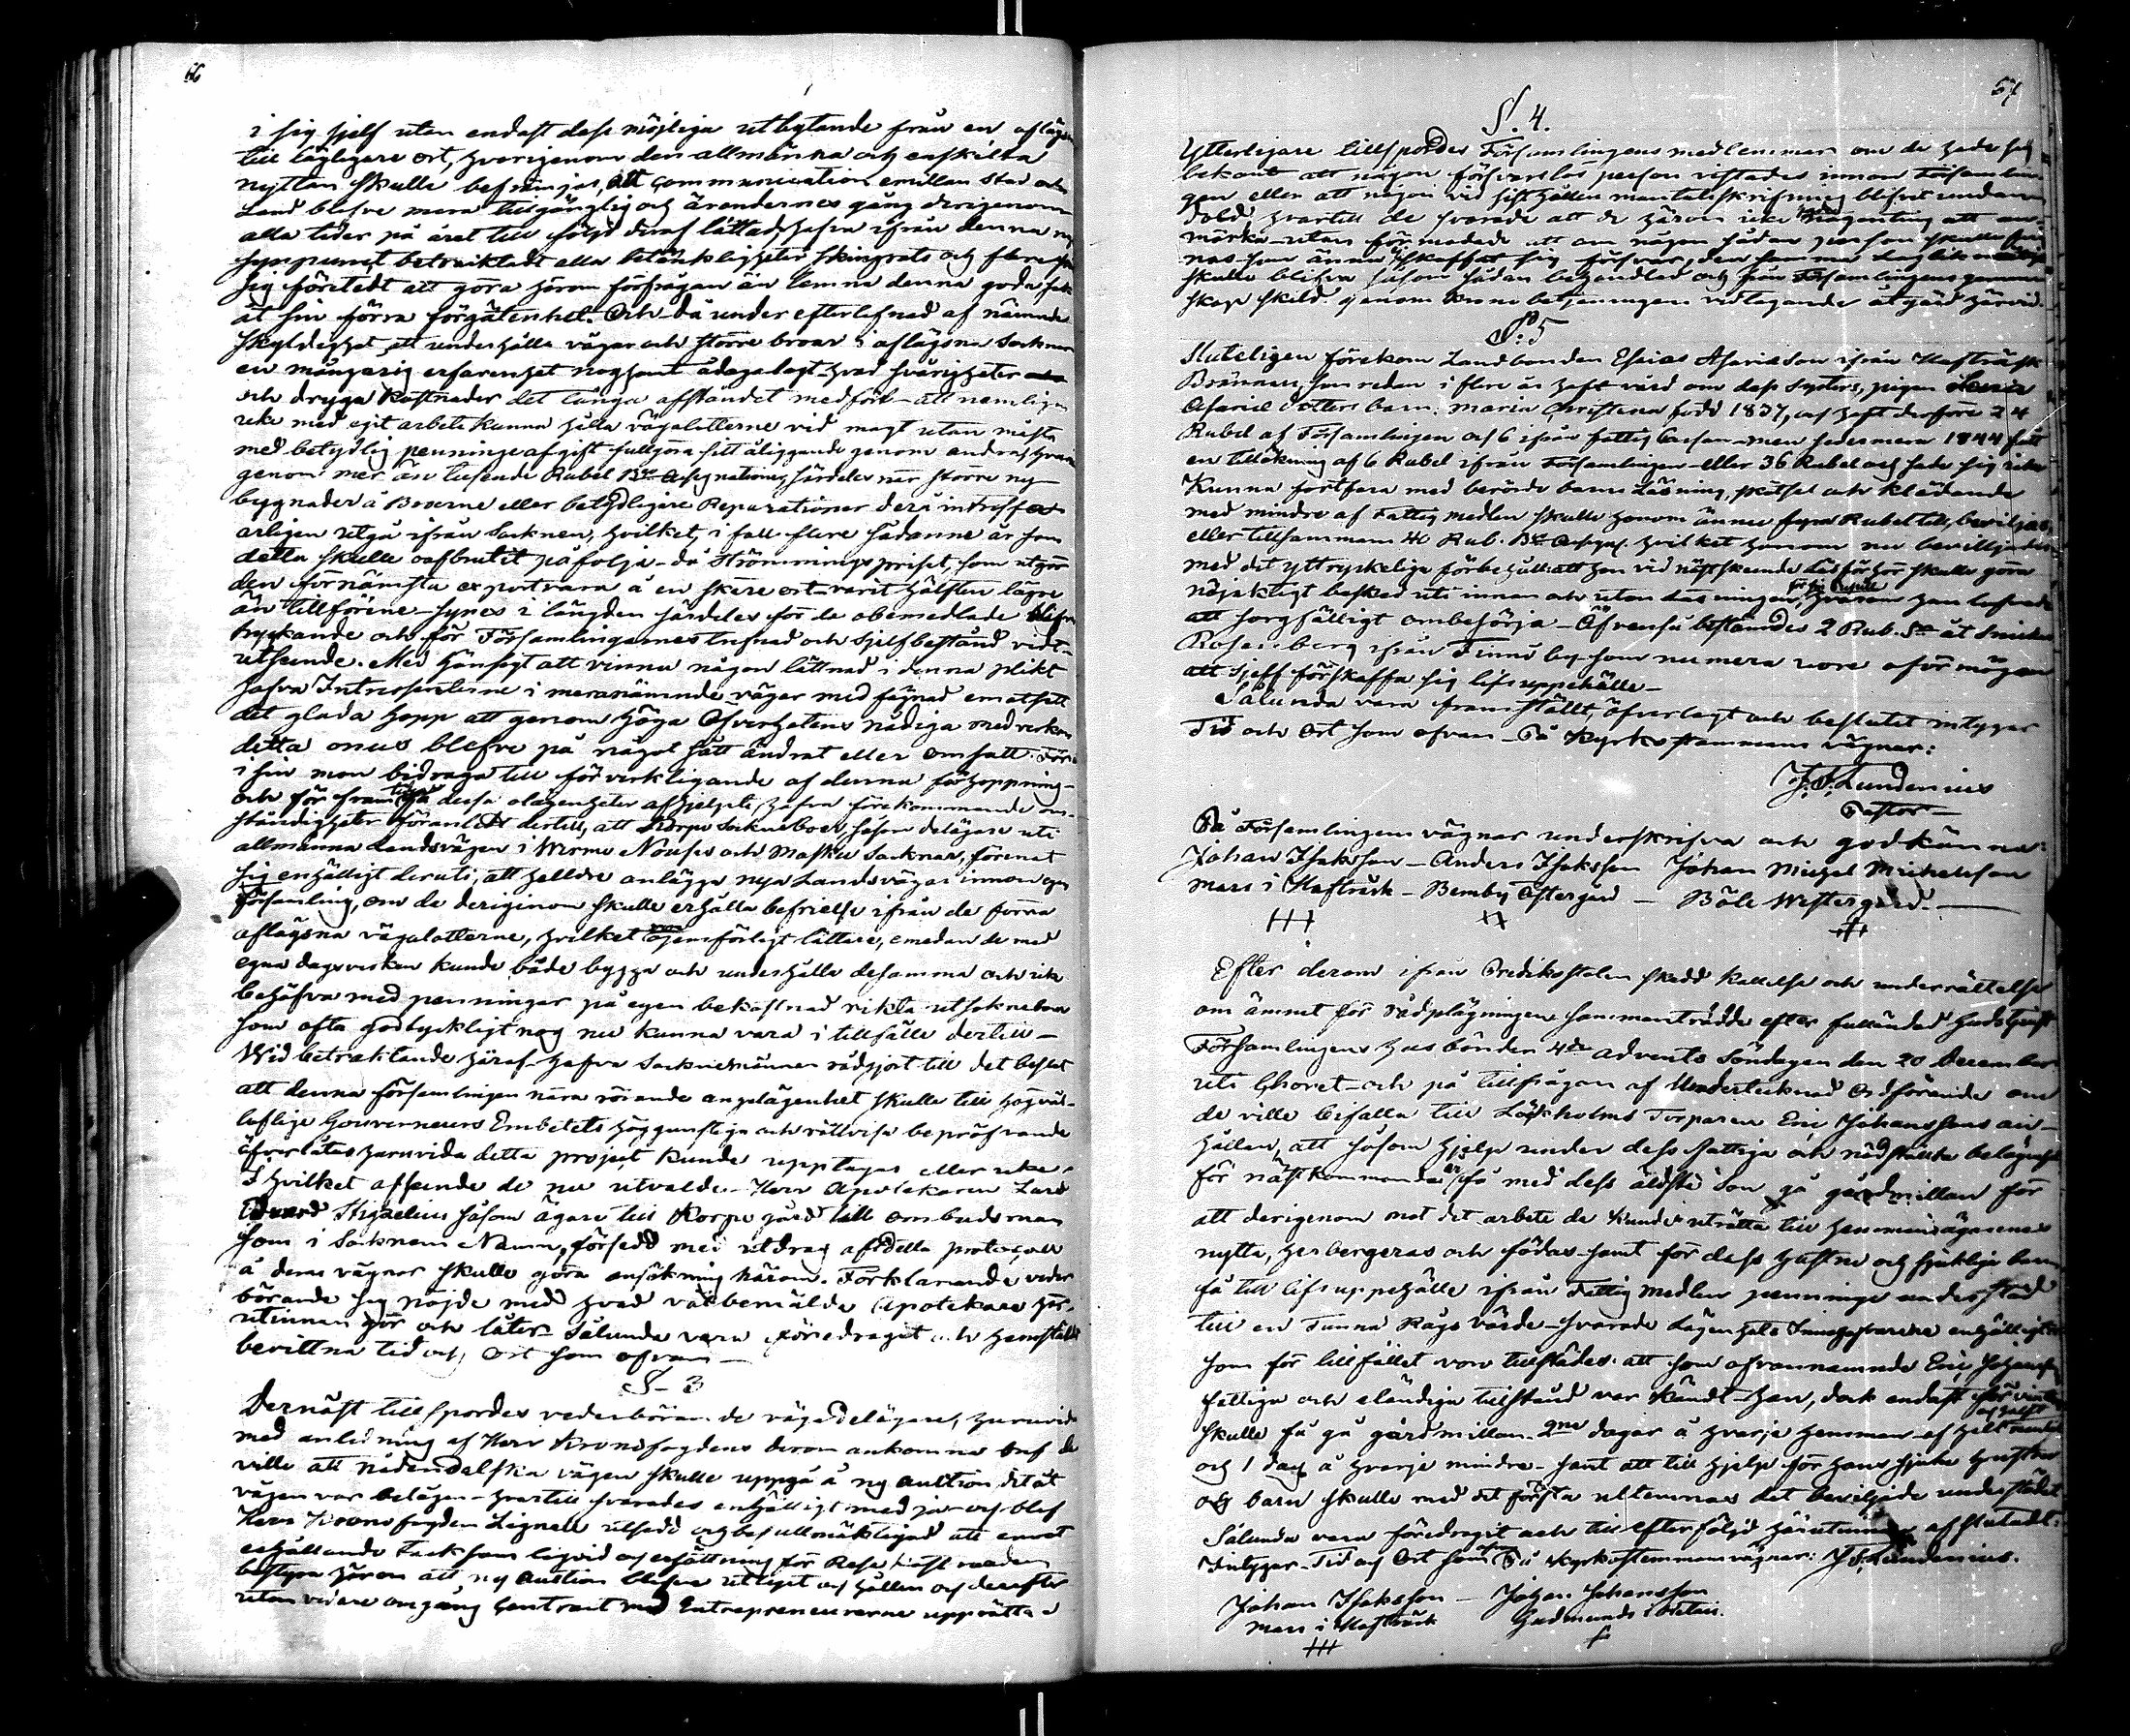 66
i sig sjelf utan endast dess möjliga utbytande från en aflägsn
till lägligare ort, hvarigenom den allmänna och enskilta
nyttan skulle befrämjas, att communication emillan stad och
Land blefve mera tillgänglig och ärendernes gång derigenom
alla tider på året till följd deraf lättad, hafva ifrån denna ny
synpunct betraktadt alla betänkligheter skingrats och flere
sig företedt att göra härom förfrågan än lemna denna goda sak
åt sin förra förgätenhet. Och då under efterlefnad af nämnde
skyldighet att underhålla vägar och större broar i aflägsna Socknar
en mångårig erfarenhet noghamt ådagalagt hvad svårigheter
och dryga kostnader det långa afståndet medfört – att nemligen
icke med egit arbete kunna hålla vägalotterne vid magt utan måsta
med betydlig penninge afgift fullgöra sitt åliggande genom andra, hvar
genom mer än tusende Rubel B:co Assignationer, särdeles när större ny
byggnader å Broarne eller betydligare Reparationer derå inträffa
årligen utgå ifrån Socknen, hvilket, i fall flere sådanne år som
detta skulle oafbrutet påfölja – då Strömmings priset, som utgör
den förnämsta exportvara å en skäreort – varit hälften lägre
än tillförene – synes i längden särdeles för de obemedlade blifva
tryckande och för Församlingarnes lefnad och sjelfbestånd vidt
utseende. Med hänsigt att vinna någon lättnad i denna plikt
hafva Intressenterne i meranämnde vägar med fägnad emotsett
det glada hopp att genom höga Öfverhetens nådiga medverkan
detta onus blefve på något sätt ändrat eller omsatt. För
i sin mon bidraga till förverkligande af denna förhoppning –
och för framtiden dessa olägenheter afhjelpte, hafva förekommande om-
ständigheter föranledt dertill, att Korpo Sockneboer, såsom delägare uti
allmänna Landsvägen i Wirmo Nousis och Masku Socknar, förenat
sig enhälligt deruti, att helldre anlägga nya Landsvägar innom egen
församling, om de derigenom skulle erhålla befrielse ifrån de förra
aflägsna vägalotterne, hvilket vore ojemförligt lättare, emedan de med
egna dagsverken kunde både bygga och underhålla desamma och icke
behöfva med penningar på egen bekostnad vikta utsocknebor
som ofta godtyckligt nog nu kunna vara i tillfälle dertill –
Wid betraktande häraf hafva Socknemännen rådgjort till det beslut
att denna församlingen nära rörande angelägenhet skulle till högväl-
loflige Gouverneurs Embetets höggunstliga och rättvisa bepröfvande
öfverlåtas huruvida detta project kunde upptagas eller icke.
I hvilket afseende de nu utvalde – Herr Apotekaren Lars
Edvard Stigzelius såsom ägare till Korpo gård till ombudsman
som i Socknens Namn, försedd med utdrag af detta protocoll
å deras vägnar skulle göra ansökning härom. Förklarande veder
börande sig nöjde med hvad välbemälde Apotekare här-
utinnan gör och låter. Sålunda vara föredraget och hemstäldt
bevittna tid och Ort som ofvan –
§ – 3
Dernäst tillspordes vederbörande vägadelägare, huruvida
med anledning af Herr Kronofogdens derom ankomna bref de
ville att nådendalska vägen skulle uppgå å ny auction ditåt
vägen var belägen – hvartill svarades enhälligt med ja – och blef
Herr Kronofogden Lignell utsedd och befullmäktigad att emot
erhållande tacksam liqvid och ersättning för Rese kostnaden
bestyra härom att ny Auction blefve utlyst och hållen och derefter
utan vidare omgång Contract med Entrepreneurerne upprättad
67
§. 4.
Ytterligare tillspordes Församlingens medlemmar om de hade sig
bekant att någon försvarslös person vistades innom Församlin-
gen eller att någon vid sist hållen mantalsskrifning blifvit undan
dold, hvartill de svarade att de härom icke hade någonting att an-
märka – utan förmodade att om någon sådan person skulle fin
nas som ännu ej skaffat sig försvar, den samme lagliknmätigt
skulle blifva såsom sådan behandlad och från Församlingens gemen
skap skild genom Krono betjeningens vidtagande åtgärd härvid.
§. 5
Sluteligen förekom Landbonden Esaias Asarieson ifrån Kafträsk
Brännars, som redan i flere år haft vård om dess systers, pigan
Asarie dotters barn. Maria Christina född 1837, och haft derföre 24
Rubel af Församlingen och 6 ifrån fattig Cassan – men sedermera 1844 fått
en tillökning af 6 Rubel ifrån Församlingen – eller 36 Rubel och sade sig icke
kunna fortfara med berörde barns läsning, skötsel och klädande
med mindre af Fattig medlen skulle honom ännu fyra Rubel till beviljas,
eller tillsammans 40 Rub. B:co Assign. hvilket honom nu beviljades
med det yttryckeliga förbehåll att hon vid nästskeende Läsförhör skulle göra
nöjaktigt besked uti innan och utan läsningen för sig skulle, hvarom han lofvade
att sorgfälligt ombesörja – Äfvenså bestämdes 2 Rub. S:r åt Smeden
Rosenberg ifrån Finnö by – som numera vore oförmögen
att sjelf förskaffa sig lifsuppehälle –
Sålunda vara framställt, öfverlagt och beslutet intygar
Tid och Ort som ofvan – På Kyrkostämmans vägnar:
J. S. Lundenius
Pastor –
På Församlingens vägnar underskrifva och godkänna:
Johan Isaksson – Anders Isaksson Johan Michel Michelsson
Mars i Kafträsk – Bemby Östergård – Böle Westergård. –
Efter derom ifrån Predikstolen skedd kallelse och underrättelse
om ämnet för rådplägningen sammanträdde efter fulländad Gudstjenst
Församlingens husbönder 4de Advents Söndagen den 20 December
uti Choret – och på tillfrågan af Undertecknad Ordförande om
de ville bifalla till Löfholms Torparen Eric Johanssons an-
hållan, att såsom hjelp under dess fattiga och nödställda belägenh
för nästkommande år få med dess äldste son gå gårdmillan för
att derigenom mot det arbete de kunde uträtta till hemmansägarenes
nytta, herbergeras och födas – samt för dess hustru och sjukliga barn
få till lifsuppehälle ifrån Fattig medlen penninge understöd
till en Tunna Rågs värde – svarade lägenhets Innehafvarene enhälligt
som för tillfället voro tillstädes. att som ofvannämnde Eric Johanss
fattiga och eländiga tillstånd var kändt – han, dock endast för vintern
skulle få gå gårdmillan 2ne dagar å hvarje hemman af helt och halft mantal
och 1 dag å hvarje mindre – samt att till hjelp för hans sjuka hustru
och barn skulle med det första utlemnas det beviljade understödet
Sålunda vara föredragit och till efterföljd härutinnan afslutadt:
Intygar – Tid och Ort som ofvan På Kyrkostemmans vägnar: J S Lundenius.
Johan Isaksson – Johan Johansson
Mars i Kafträsk Gudmunds i Retais.